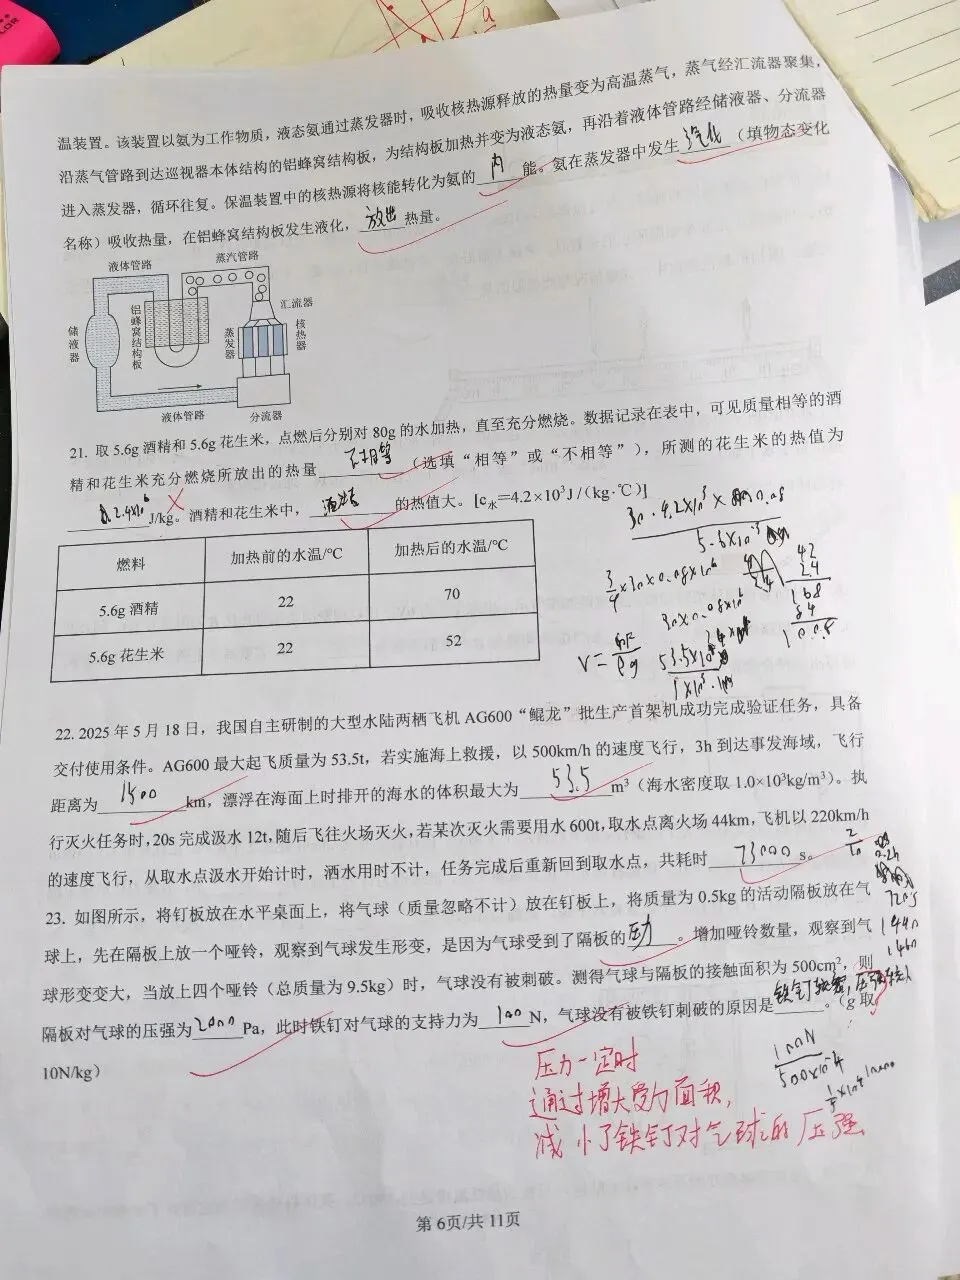 温装置。该装置以氨为工作物质，液态氨通过蒸发器时，吸收核热源释放的热量变为高温蒸气，蒸气经汇流器聚集，
沿蒸气管路到达巡视器本体结构的铝蜂窝结构板，为结构板加热并变为液态氨，再沿着液体管路经储液器、分流器
进入蒸发器，循环往复。保温装置中的核热源将核能转化为氨的 内 能。氨在蒸发器中发生 汽化 （填物态变化
名称）吸收热量，在铝蜂窝结构板发生液化， 放出 热量。
液体管路
蒸汽管路
汇流器
铝蜂窝结构板
储液器
蒸发器
核热器
液体管路
分流器
21. 取 5.6g 酒精和 5.6g 花生米，点燃后分别对 80g 的水加热，直至充分燃烧。数据记录在表中，可见质量相等的酒
精和花生米充分燃烧所放出的热量 不相等 （选填“相等”或“不相等”），所测的花生米的热值为
2.4×10⁶ J/kg。酒精和花生米中， 酒精 的热值大。[c水＝4.2×10³J /（kg·℃）]
燃料 加热前的水温/℃ 加热后的水温/℃
5.6g 酒精 22 70
5.6g 花生米 22 52
22. 2025 年 5 月 18 日，我国自主研制的大型水陆两栖飞机 AG600“鲲龙”批生产首架机成功完成验证任务，具备
交付使用条件。AG600 最大起飞质量为 53.5t，若实施海上救援，以 500km/h 的速度飞行，3h 到达事发海域，飞行
距离为 1500 km，漂浮在海面上时排开的海水的体积最大为 53.5 m³（海水密度取 1.0×10³kg/m³）。执
行灭火任务时，20s 完成汲水 12t，随后飞往火场灭火，若某次灭火需要用水 600t，取水点离火场 44km，飞机以 220km/h
的速度飞行，从取水点汲水开始计时，洒水用时不计，任务完成后重新回到取水点，共耗时 73000 s。
23. 如图所示，将钉板放在水平桌面上，将气球（质量忽略不计）放在钉板上，将质量为 0.5kg 的活动隔板放在气
球上，先在隔板上放一个哑铃，观察到气球发生形变，是因为气球受到了隔板的 压力 。增加哑铃数量，观察到气
球形变变大，当放上四个哑铃（总质量为 9.5kg）时，气球没有被刺破。测得气球与隔板的接触面积为 500cm²，则
隔板对气球的压强为 2000 Pa，此时铁钉对气球的支持力为 100 N，气球没有被铁钉刺破的原因是 。（g 取
10N/kg）
720s
1440
1460
100N
500×10⁻⁴
压力一定时
通过增大受力面积，
减小了铁钉对气球的压强
第 6页/共 11页